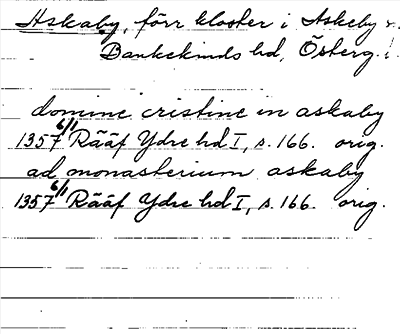 Askaby, förr kloster i Askeby s.
Bankekinds hd, Österg. l.
domine cristine in askaby
1357 6/1 Rääf Ydre hd I, s. 166. orig.
ad monasterium askaby
1357 6/1 Rääf Ydre hd I, s. 166. orig.